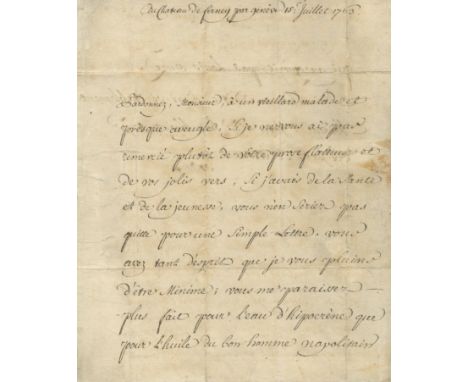 du Chateau de ferney par genève 15e Juillet 1763
Pardonnez, Monsieur, à un vieillard malade et
presque aveugle, Si je ne vous ai pas
remercié plutôt de votre prose flatteuse et
de vos jolis vers. Si j'avais de la Santé
et de la jeunesse, vous n'en Seriez pas
quitte pour une Simple Lettre. vous
avez tant d'esprit que je vous plains
d'être Minime; vous me paraissez —
plus fait pour l'eau d'hipocrène que
pour L'huile du bon homme napolitain